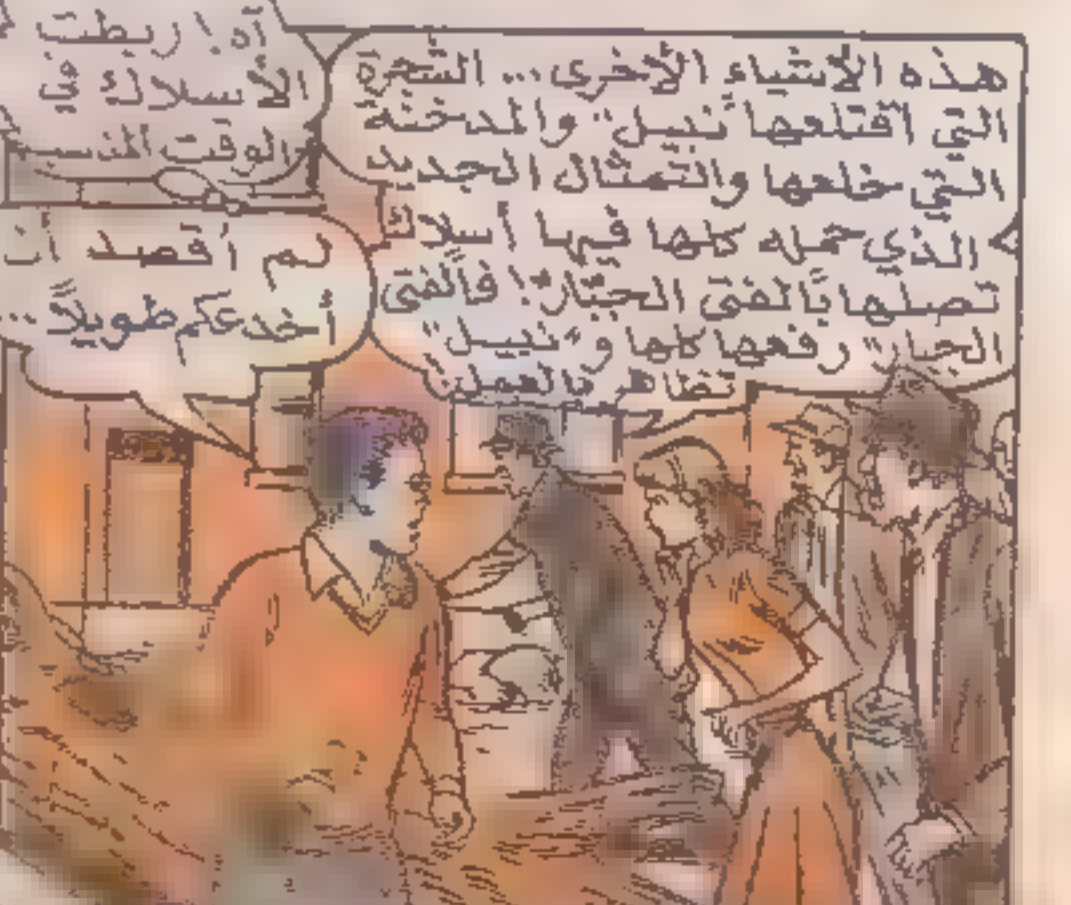 هذه الأشياء الأخرى... الشجرة
التي اقتلعها "نبيل" والمدخنة
التي خلعها والتمثال الجديد
الذي حمله كلها فيها أسلاك
تصلها بالفتى الجبّار"! فالفتى
الجبار" رفعها كلها و"نبيل"
تظاهر بالعمل"
آه! ربطت
الأسلاك في
الوقت المناسب
لم أقصد أن
أخدعكم طويلاً ...